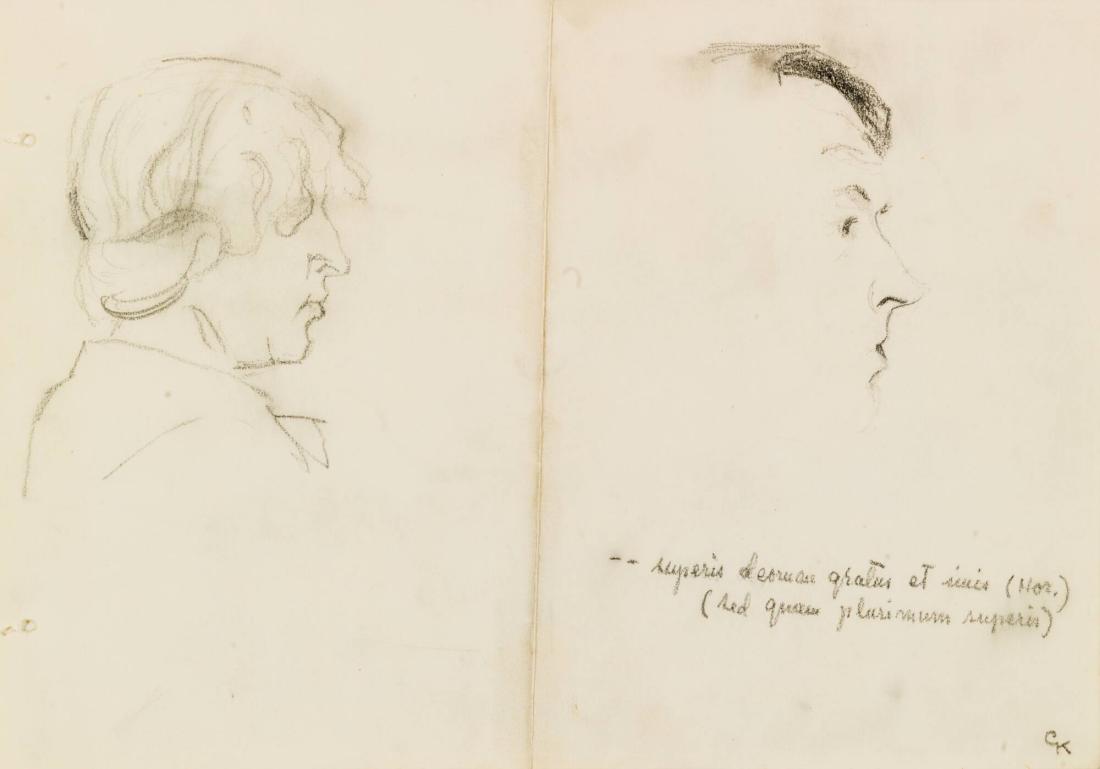 -- superis deorum gratus et imis (Hor.)
(sed quam plurimum superis)
CK